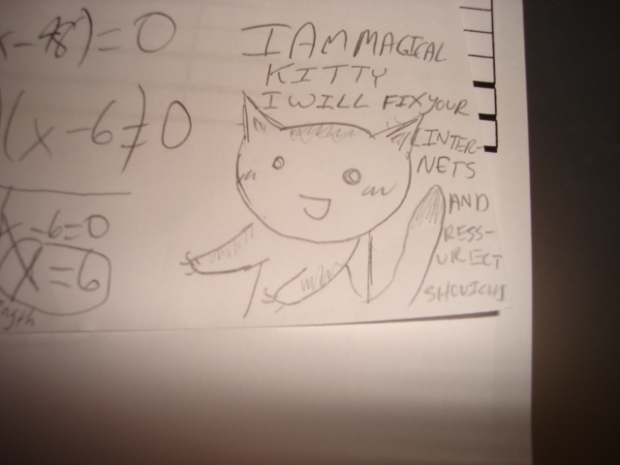 x-48)=0
(x-6)=0
x-6=0
x=6
I AM MAGICAL
KITTY
I WILL FIX YOUR
INTER-
NETS
AND
RESS-
URECT
SHOUICHI